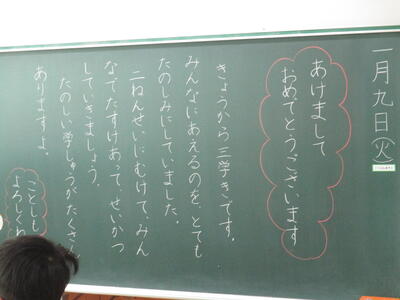 一月九日(火)
あけまして
おめでとうございます
きょうから三学きです。
みんなにあえるのを、とても
たのしみにしていました。
二ねんせいにむけて、みん
なでたすけあって、せいかつ
していきましょう。
たのしい学しゅうがたくさん
ありますよ。
ことしも
よろしくね